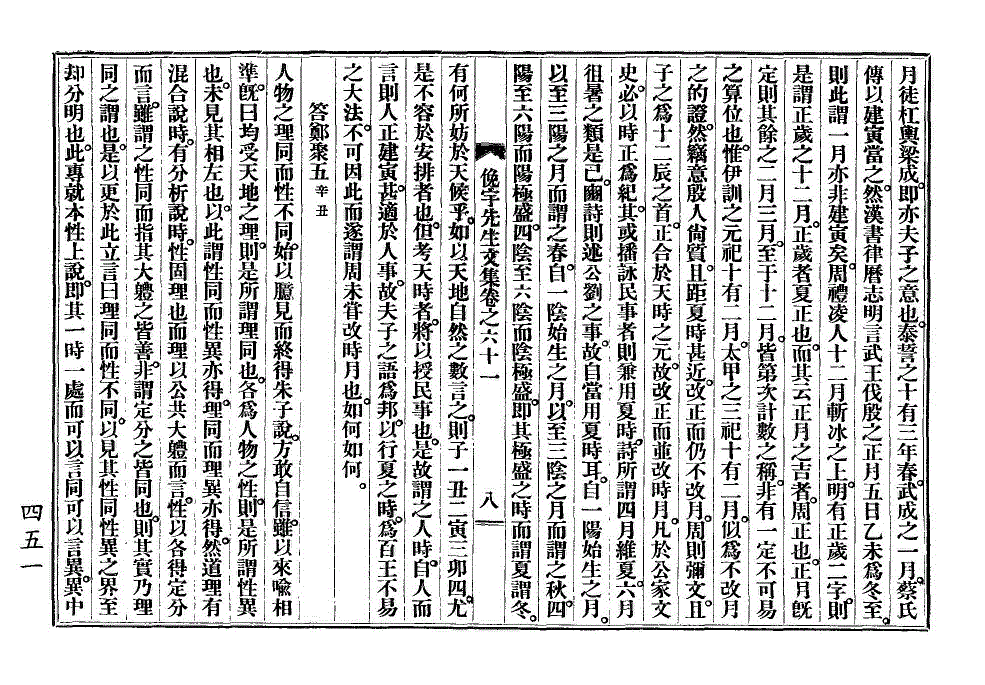 月徒杠輿梁成。卽亦夫子之意也。泰誓之十有三年春。武成之一月。蔡氏
傳以建寅當之。然漢書律曆志明言武王伐殷之正月五日乙未爲冬至。
則此謂一月亦非建寅矣。周禮凌人十二月斬冰之上。明有正歲二字。則
是謂正歲之十二月。正歲者夏正也。而其云正月之吉者。周正也。正月旣
定則其餘之二月三月。至于十二月。皆第次計數之稱。非有一定不可易
之算位也。惟伊訓之元祀十有二月。太甲之三祀十有二月。似爲不改月
之的證。然竊意殷人尙質。且距夏時甚近。改正而仍不改月。周則彌文。且
子之爲十二辰之首。正合於天時之元。故改正而並改時月。凡於公家文
史。必以時正爲紀。其或播詠民事者則兼用夏時。詩所謂四月維夏。六月
徂暑之類是已。豳詩則述公劉之事。故自當用夏時耳。自一陽始生之月。
以至三陽之月而謂之春。自一陰始生之月。以至三陰之月而謂之秋。四
陽至六陽而陽極盛。四陰至六陰而陰極盛。卽其極盛之時而謂夏謂冬。
俛宇先生文集卷之六十一
八
有何所妨於天候乎。如以天地自然之數言之。則子一丑二寅三卯四。尤
是不容於安排者也。但考天時者。將以授民事也。是故謂之人時。自人而
言則人正建寅。甚適於人事。故夫子之語爲邦。以行夏之時。爲百王不易
之大法。不可因此而遂謂周未甞改時月也。如何如何。
答鄭聚五 辛丑
人物之理同而性不同。始以臆見而終得朱子說。方敢自信。雖以來喩相
準。旣曰均受天地之理。則是所謂理同也。各爲人物之性。則是所謂性異
也。未見其相左也。以此謂性同而性異亦得。理同而理異亦得。然道理有
混合說時。有分析說時。性固理也。而理以公共大軆而言。性以各得定分
而言。雖謂之性同而指其大軆之皆善。非謂定分之皆同也。則其實乃理
同之謂也。是以更於此立言曰理同而性不同。以見其性同性異之界至
却分明也。此專就本性上說。卽其一時一處而可以言同可以言異。異中
四五一